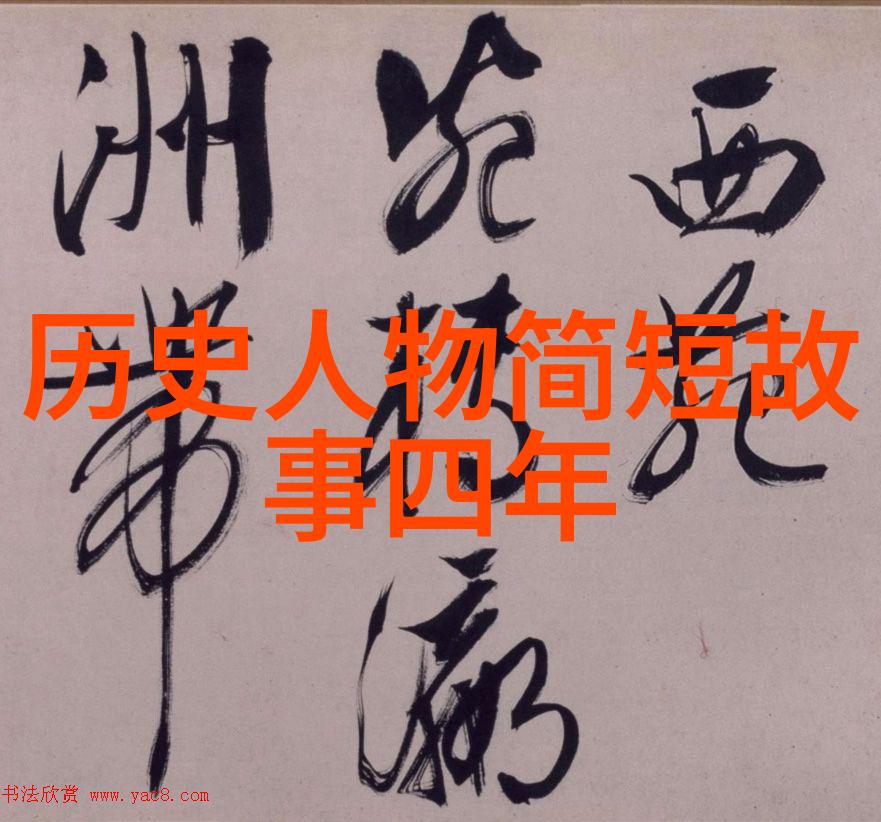 西苑
瀛
洲帶
历史人物简短故
事四年
书法欣赏 www.yac8.com